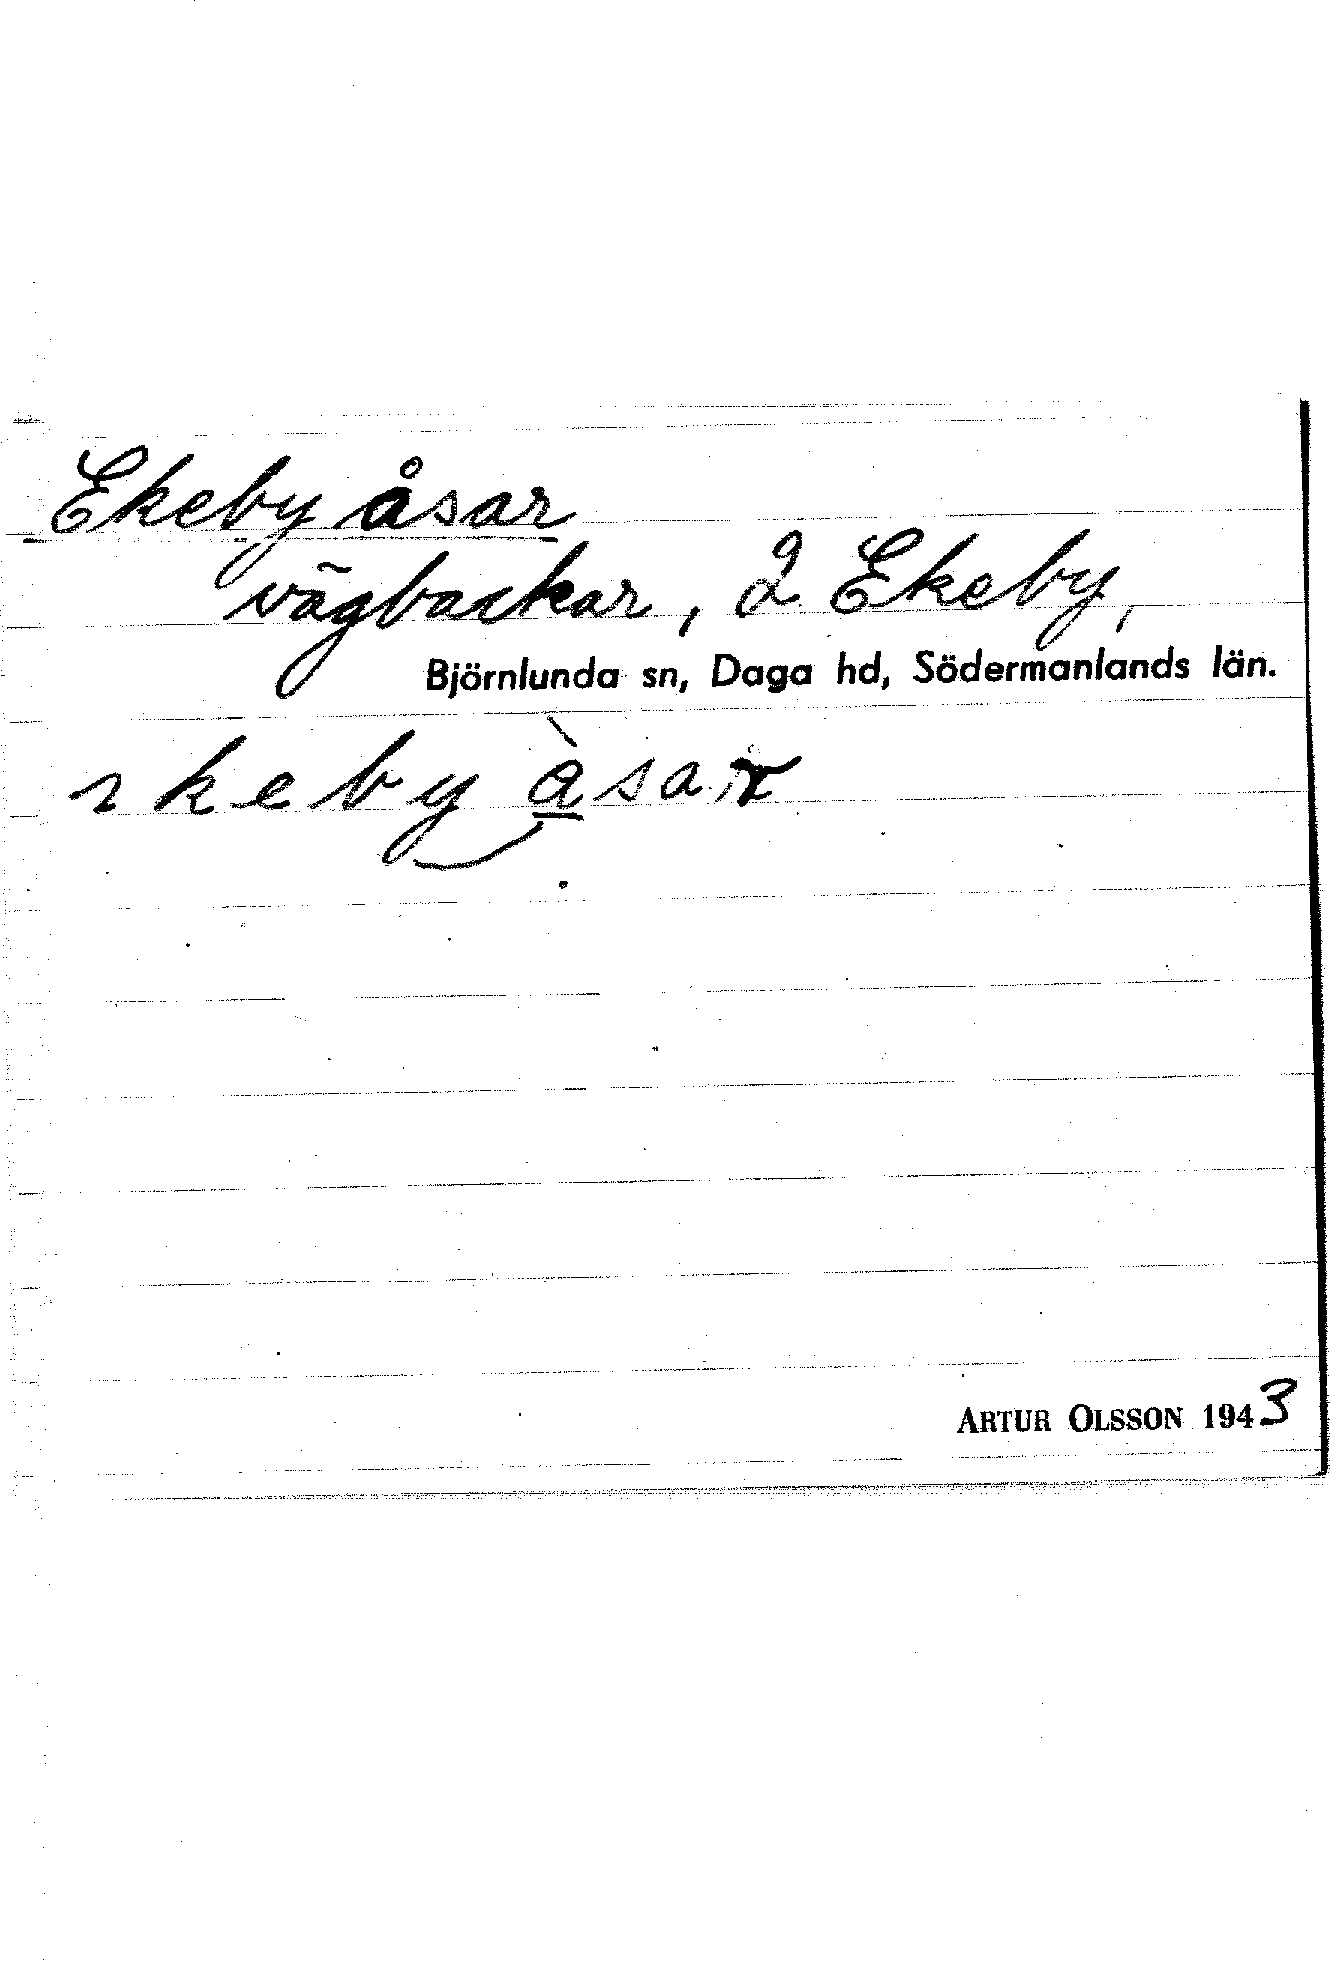 Ekeby åsar
vägbackar, 2 Ekeby,
Björnlunda sn, Daga hd, Södermanlands län.
ɿkeby åsar
ARTUR OLSSON 1943